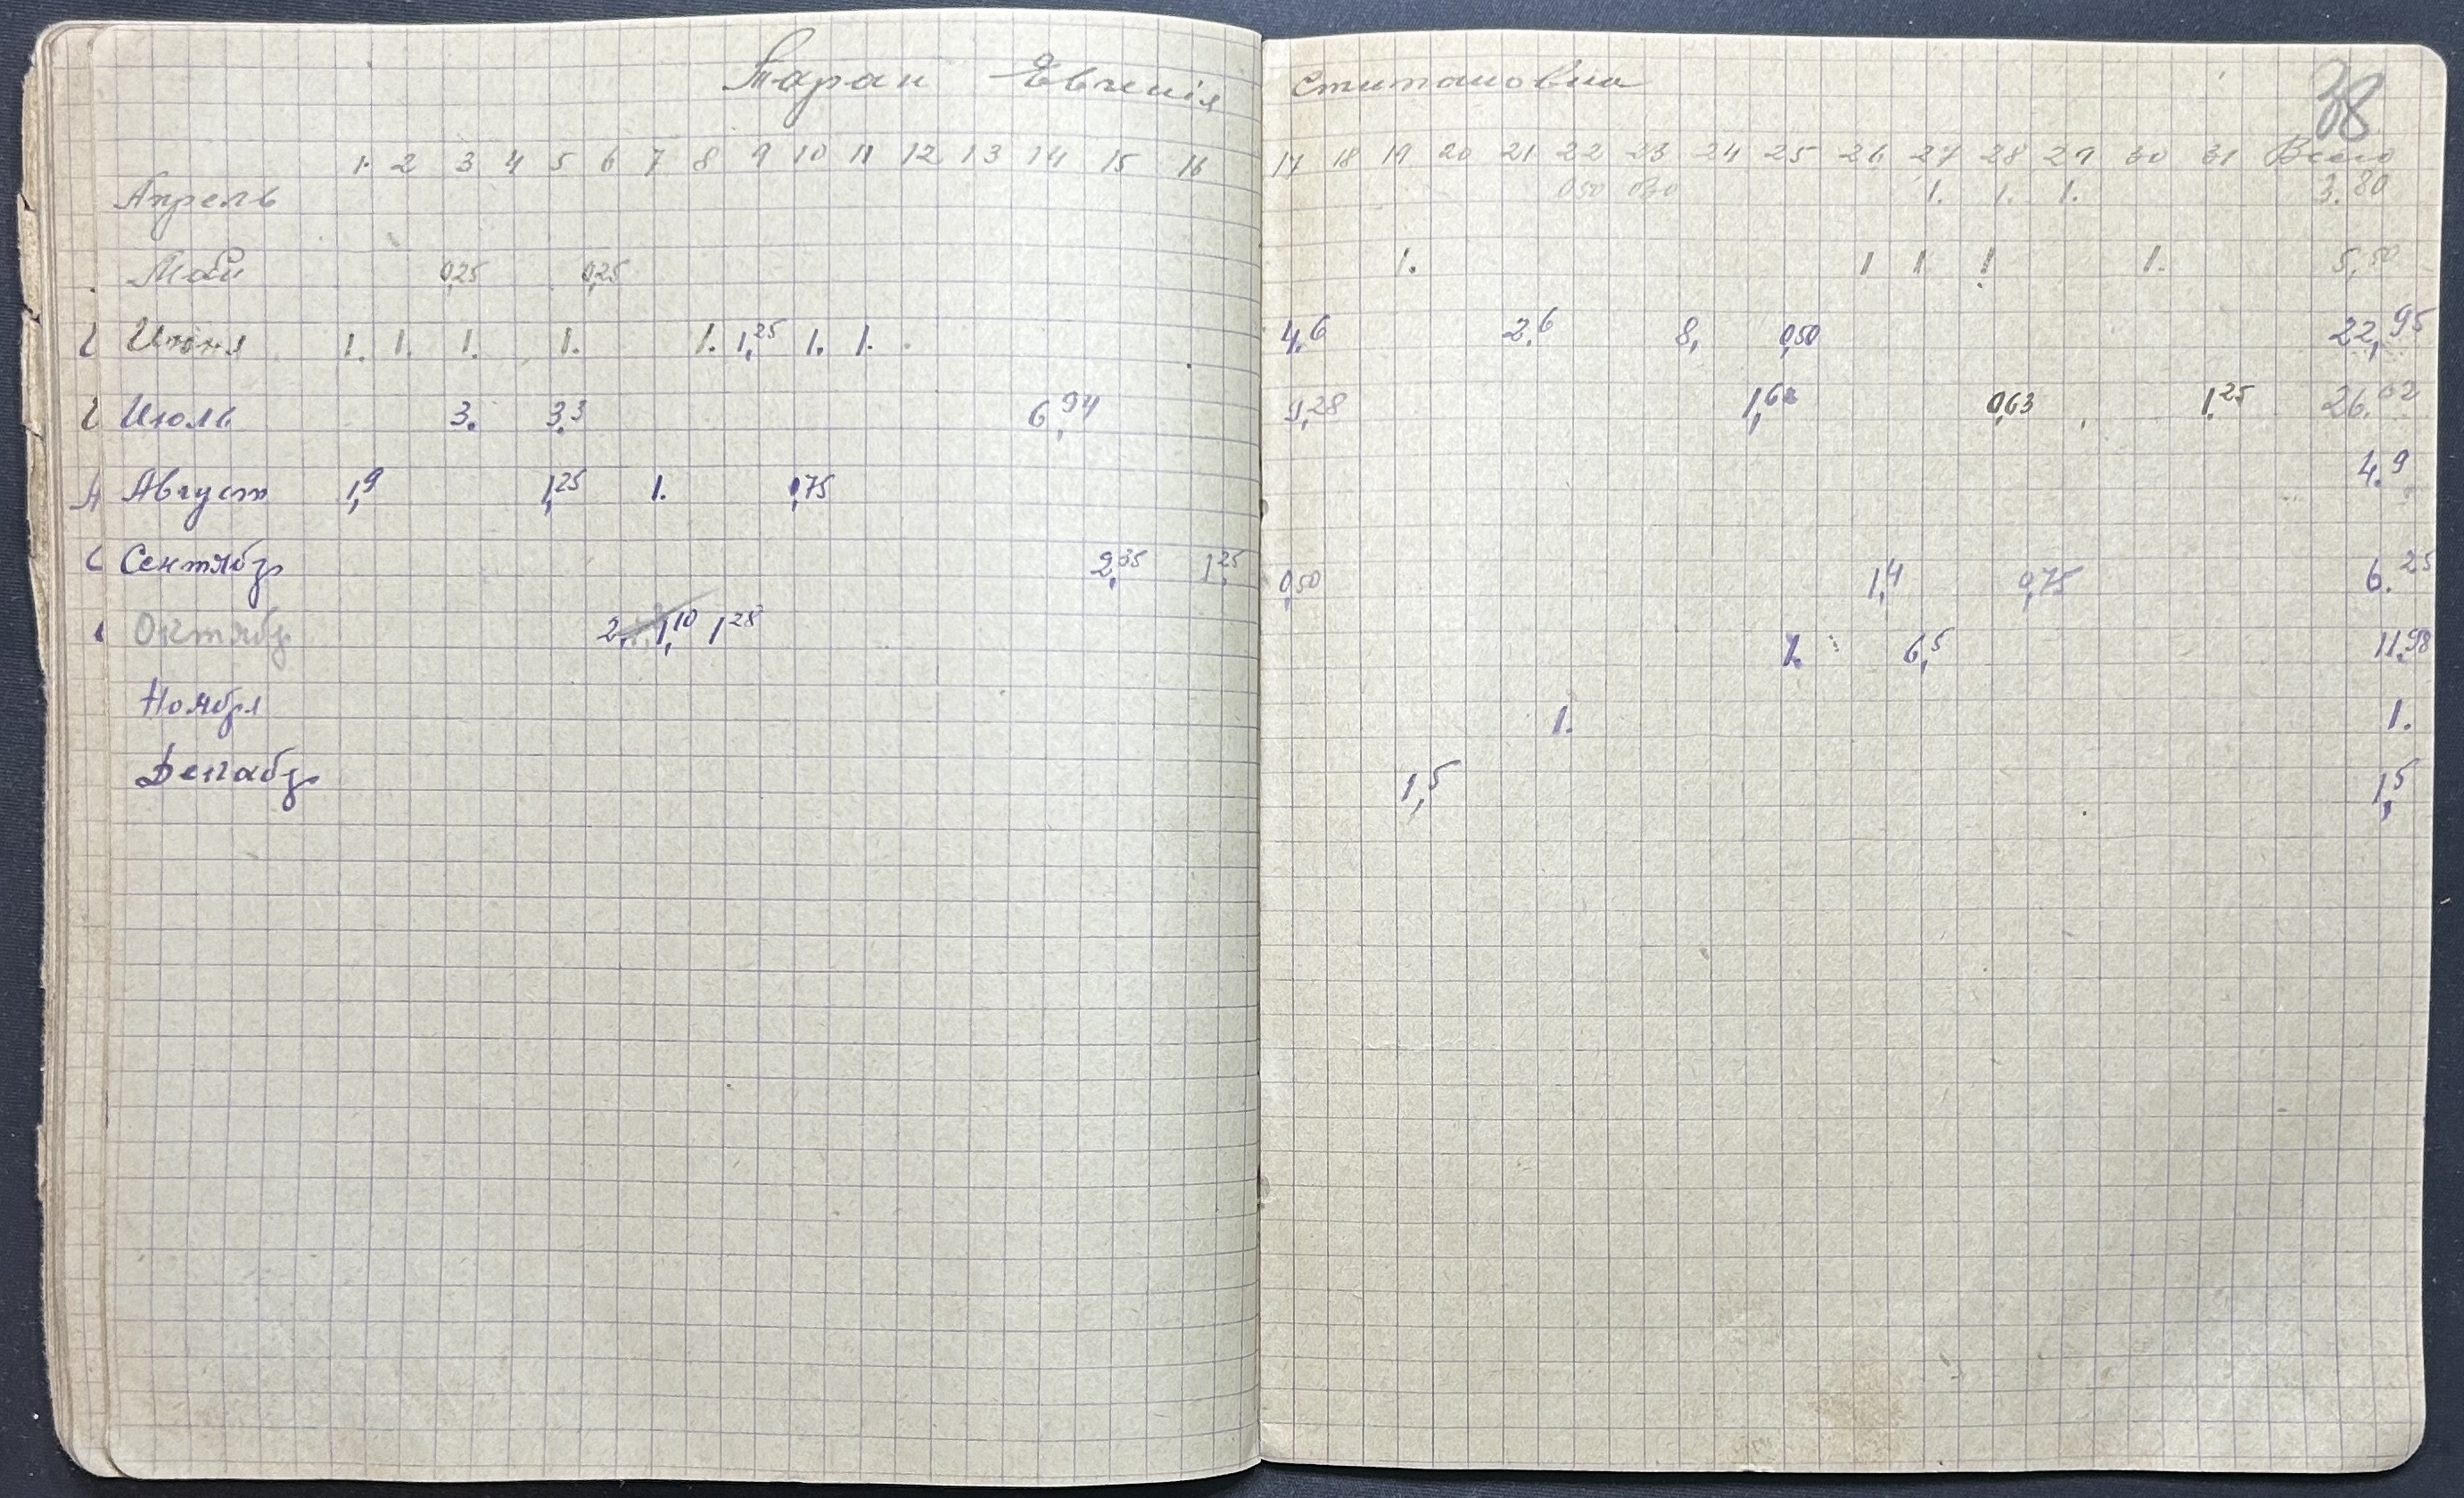 Таран Євгенія Степановна 38
1 2 3 4 5 6 7 8 9 10 11 12 13 14 15 16 17 18 19 20 21 22 23 24 25 26 27 28 29 30 31 Всего
Апрель 0,50 0,30 1. 1. 1. 3.80
Май 0,25 0,25 1. 1 1 1 1. 5,50
Июня 1. 1. 1. 1. 1. 1,25 1. 1. 4,6 2,6 8, 0,50 22,95
Июль 3. 3,3 6,94 9,28 1,62 0,63 1,25 26.02
Август 1,9 1,25 1. 0,75 4.9
Сентябр 2,35 1,25 0,50 1,4 0,75 6.25
Октябр 2. 1,10 1 28 1. 6,5 11.98
Ноября 1. 1.
Декабр 1,5 1,5